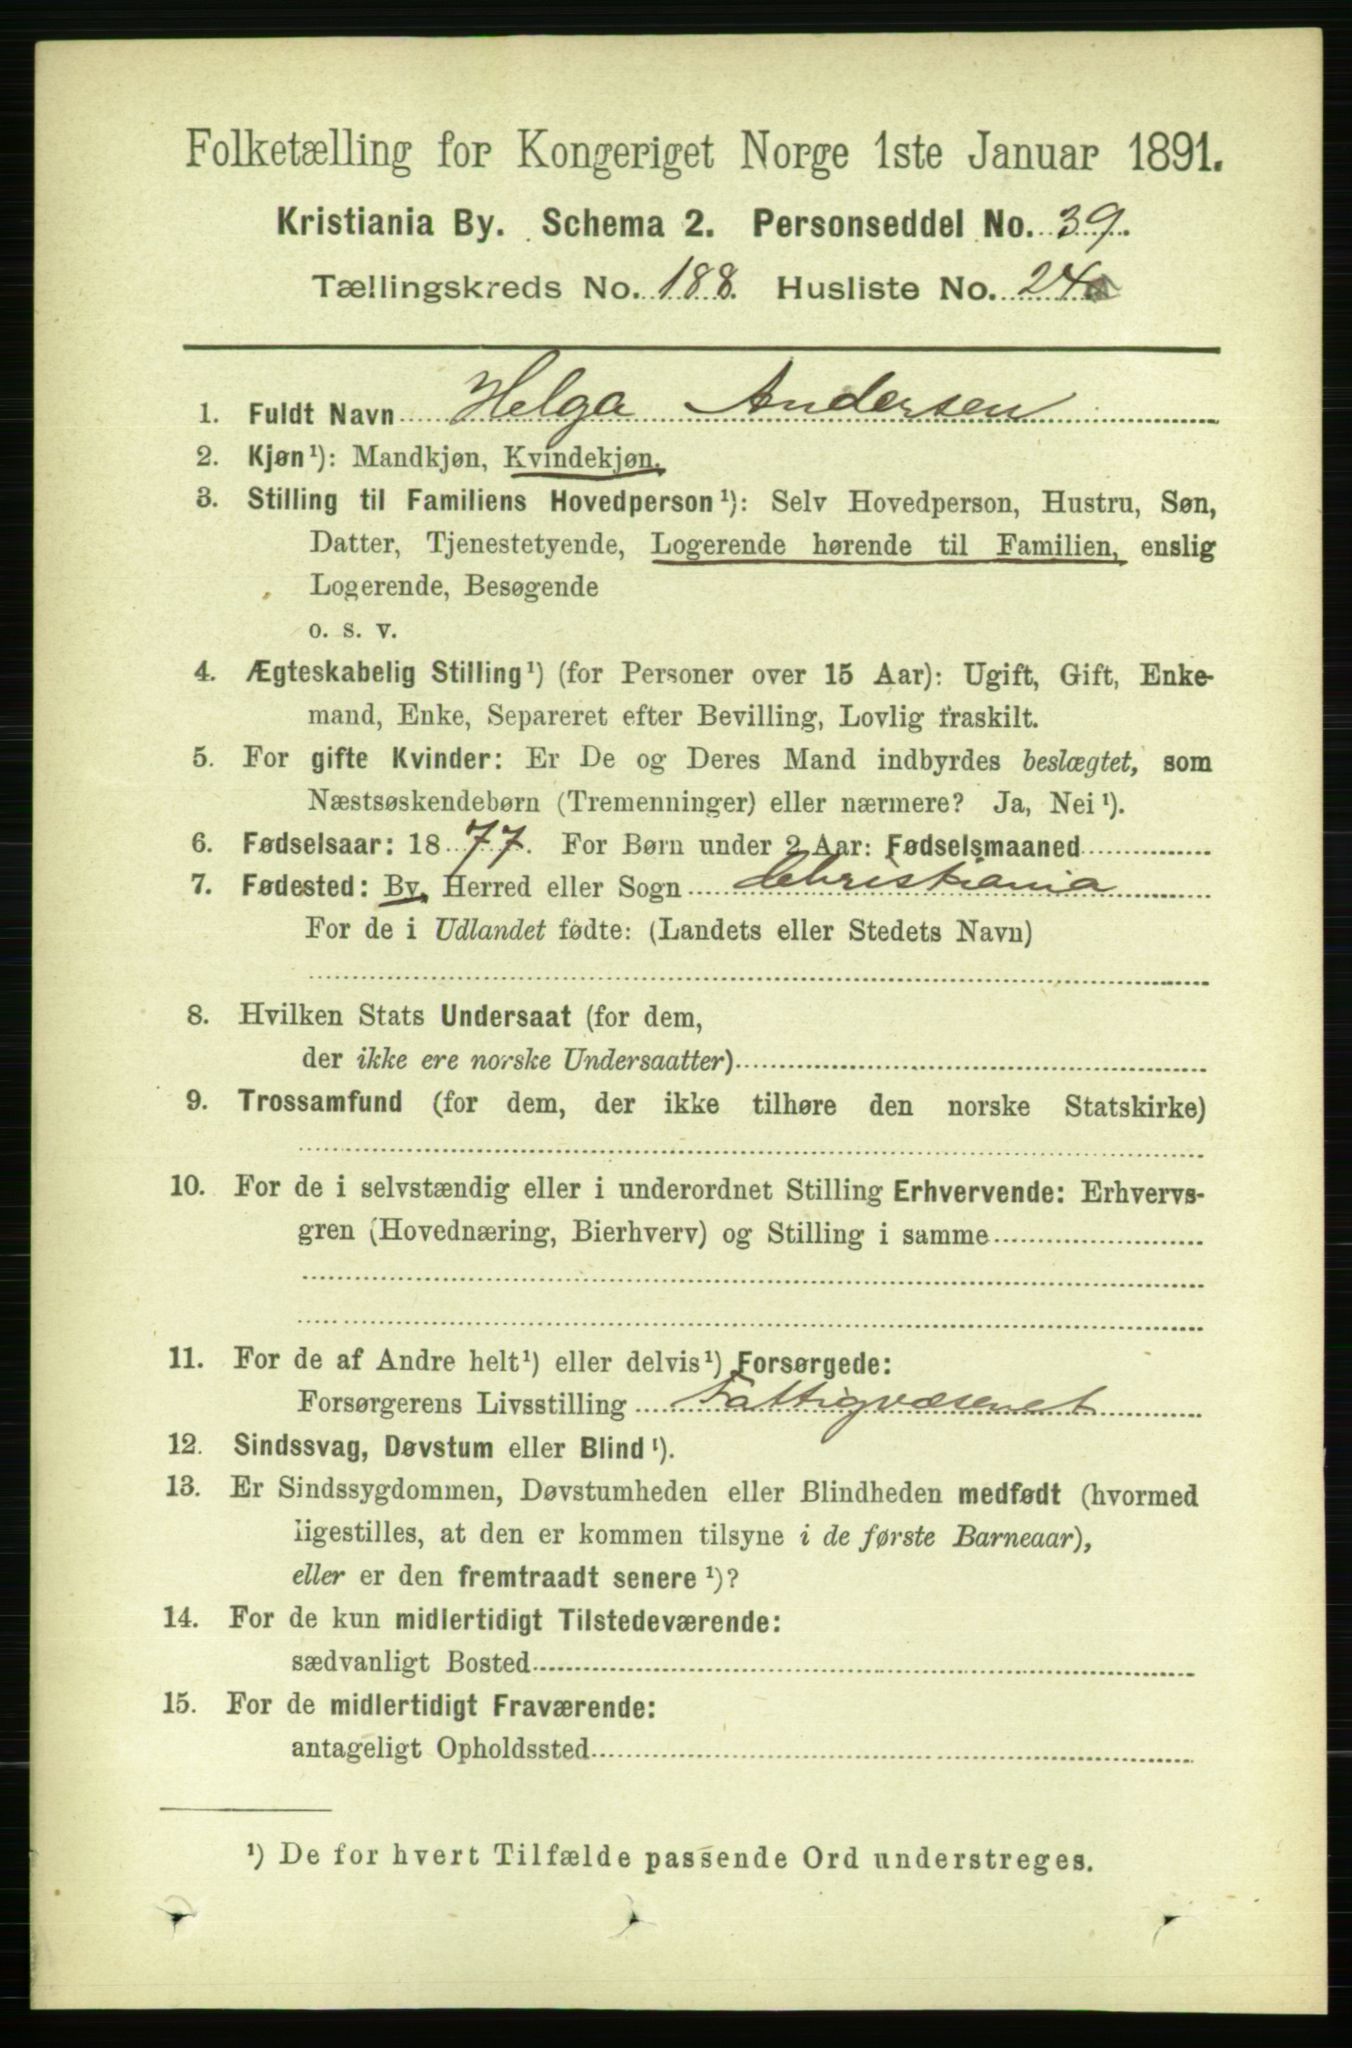 Folketælling for Kongeriget Norge 1ste Januar 1891.
Kristiania By. Schema 2. Personseddel No. 39.
Tællingskreds No. 188. Husliste No. 24
1. Fuldt Navn Helga Andersen
2. Kjøn¹): Mandkjøn, Kvindekjøn.
3. Stilling til Familiens Hovedperson¹): Selv Hovedperson, Hustru, Søn,
Datter, Tjenestetyende, Logerende hørende til Familien, enslig
Logerende, Besøgende
o. s. v.
4. Ægteskabelig Stilling¹) (for Personer over 15 Aar): Ugift, Gift, Enke-
mand, Enke, Separeret efter Bevilling, Lovlig fraskilt.
5. For gifte Kvinder: Er De og Deres Mand indbyrdes beslægtet, som
Næstsøskendebørn (Tremenninger) eller nærmere? Ja, Nei¹).
6. Fødselsaar: 1877. For Børn under 2 Aar: Fødselsmaaned
7. Fødested: By, Herred eller Sogn Christiania
For de i Udlandet fødte: (Landets eller Stedets Navn)
8. Hvilken Stats Undersaat (for dem,
der ikke ere norske Undersaatter)
9. Trossamfund (for dem, der ikke tilhøre den norske Statskirke)
10. For de i selvstændig eller i underordnet Stilling Erhvervende: Erhvervs-
gren (Hovednæring, Bierhverv) og Stilling i samme
11. For de af Andre helt¹) eller delvis¹) Forsørgede:
Forsørgerens Livsstilling Fattigvæsenet
12. Sindssvag, Døvstum eller Blind¹).
13. Er Sindssygdommen, Døvstumheden eller Blindheden medfødt (hvormed
ligestilles, at den er kommen tilsyne i de første Barneaar),
eller er den fremtraadt senere¹)?
14. For de kun midlertidigt Tilstedeværende:
sædvanligt Bosted
15. For de midlertidigt Fraværende:
antageligt Opholdssted
¹) De for hvert Tilfælde passende Ord understreges.